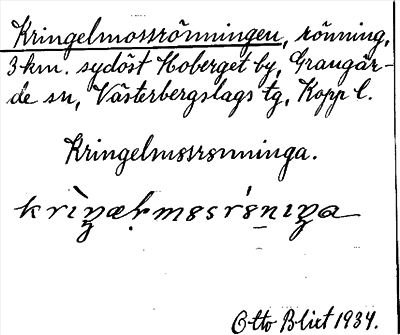 Kringelmossrönningen, rönning,
3 km. sydöst Hoberget by, Grangär-
de sn, Västerbergslags tg, Kopp l.
Kringelmssrsnninga.
Otto Blixt 1934.